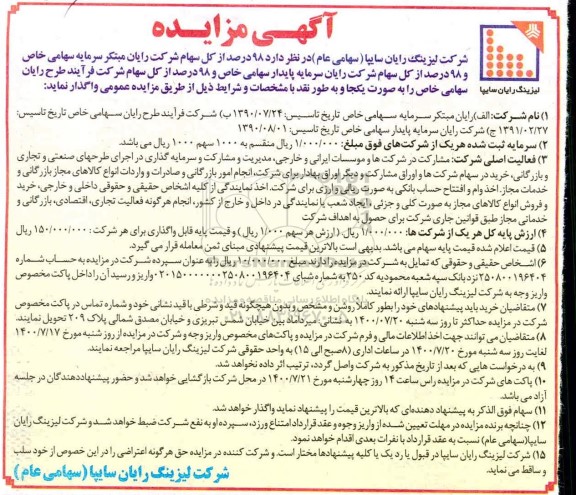 آگهی مزایده
لیزینگ رایان سایپا
شرکت لیزینگ رایان سایپا ( سهامی عام ) در نظر دارد ۹۸ درصد از کل سهام شرکت رایان مبتکر سرمایه سهامی خاص
و ۹۸ درصد از کل سهام شرکت رایان سرمایه پایدار سهامی خاص و ۹۸ درصد از کل سهام شرکت فرآیند طرح رایان
سهامی خاص را به صورت یکجا و به طور نقد با مشخصات و شرایط ذیل از طریق مزایده عمومی واگذار نماید:
۱) نام شرکت: الف) رایان مبتکر سرمایه سهامی خاص تاریخ تاسیس: ۱۳۹۰/۰۷/۲۴ ب) شرکت فرآیند طرح رایان سهامی خاص تاریخ تاسیس:
۱۳۹۱/۰۲/۲۷ ج) شرکت رایان سرمایه پایدار سهامی خاص تاریخ تاسیس: ۱۳۹۰/۰۸/۰۱
۲) سرمایه ثبت شده هر یک از شرکت‌های فوق مبلغ: ۱/۰۰۰/۰۰۰ ریال منقسم به ۱۰۰۰ سهم ۱۰۰۰ ریال می باشد.
۳) فعالیت اصلی شرکت: مشارکت در شرکت ها و موسسات ایرانی و خارجی، مدیریت و مشارکت و سرمایه گذاری در اجرای طرحهای صنعتی و تجاری
و بازرگانی، خرید در سهام شرکت ها و اوراق مشارکت و دیگر اوراق بهادار برای شرکت، انجام امور بازرگانی و صادرات و واردات انواع کالاهای مجاز بازرگانی و
خدمات مجاز، اخذ وام و افتتاح حساب بانکی به صورت ریالی و ارزی برای شرکت. اخذ نمایندگی از کلیه اشخاص حقیقی و حقوقی داخلی و خارجی، خرید
و فروش انواع کالاهای مجاز به صورت کلی و جزئی ایجاد شعب یا نمایندگی در داخل و خارج از کشور، انجام هرگونه فعالیت تجاری، اقتصادی، بازرگانی و
خدماتی مجاز طبق قوانین جاری شرکت برای حصول به اهداف شرکت
۴) ارزش پایه کل هر یک از شرکت ها: ۱/۰۰۰/۰۰۰ ریال (ارزش هر سهم ۱/۰۰۰ ریال) و قیمت پایه قابل واگذاری برای هر شرکت: ۱۵۰/۰۰۰/۰۰۰ ریال.
۵) قیمت اعلام شده قیمت پایه سهام می باشد. بدیهی است بالاترین قیمت پیشنهادی مبنای ثمن معامله قرار می گیرد.
۶) اشخاص حقیقی و حقوقی که تمایل به شرکت در مزایده را دارند مبلغ ریال را به عنوان سپرده شرکت در مزایده به حساب شماره
۲۵۰۸۰۰۱۹۶۴۰۴ نزد بانک سپه شعبه محمودیه کد ۲۵۰ به شماره شبای واریز و رسید آن را داخل پاکت مخصوص
واریز وجه به شرکت لیزینگ رایان سایپا ارائه نمایند.
۷) متقاضیان خرید باید پیشنهادهای خود را بطور کاملاً روشن و مشخص و بدون هیچگونه قید و شرطی با قید نشانی خود و شماره تماس در پاکت مخصوص
شرکت در مزایده حداکثر تا روز سه شنبه ۱۴۰۰/۰۷/۲۰ به نشانی میرداماد بین خیابان شمس تبریزی و خیابان مصدق شمالی پلاک ۲۰۹ تحویل نمایند.
۸) متقاضیان می توانند جهت اخذ اطلاعات مالی و فرم شرکت در مزایده و پاکت‌های مخصوص واریز وجه و شرکت در مزایده از روز شنبه مورخ ۱۴۰۰/۷/۱۷
لغایت روز سه شنبه مورخ ۱۴۰۰/۷/۲۰ در ساعات اداری (۸ صبح الی ۱۵) به واحد حقوقی شرکت لیزینگ رایان سایپا مراجعه نمایند.
۹) به درخواست هایی که بعد از تاریخ مذکور به شرکت واصل گردد، ترتیب اثر داده نخواهد شد.
۱۰) پاکت های شرکت در مزایده راس ساعت ۱۴ روز چهارشنبه مورخ ۱۴۰۰/۰۷/۲۱ در محل شرکت بازگشایی خواهد شد و حضور پیشنهاددهندگان در جلسه
آزاد می باشد.
۱۱) سهام فوق الذکر به پیشنهاد دهنده‌ای که بالاترین قیمت را پیشنهاد نماید واگذار خواهد شد.
۱۲) چنانچه برنده مزایده در مهلت تعیین شده از واریز وجوه و عقد قرارداد امتناع ورزد، سپرده او به نفع شرکت ضبط خواهد شد و شرکت لیزینگ رایان
سایپا (سهامی عام) نسبت به عقد قرارداد با نفرات بعدی اقدام خواهد نمود.
۱۵) شرکت لیزینگ رایان سایپا در قبول یا رد یک یا کلیه پیشنهادها مختار است. و شرکت کننده در مزایده حق هر گونه اعتراضی را در این خصوص از خود سلب
و ساقط می نماید.
شرکت لیزینگ رایان سایپا (سهامی عام)